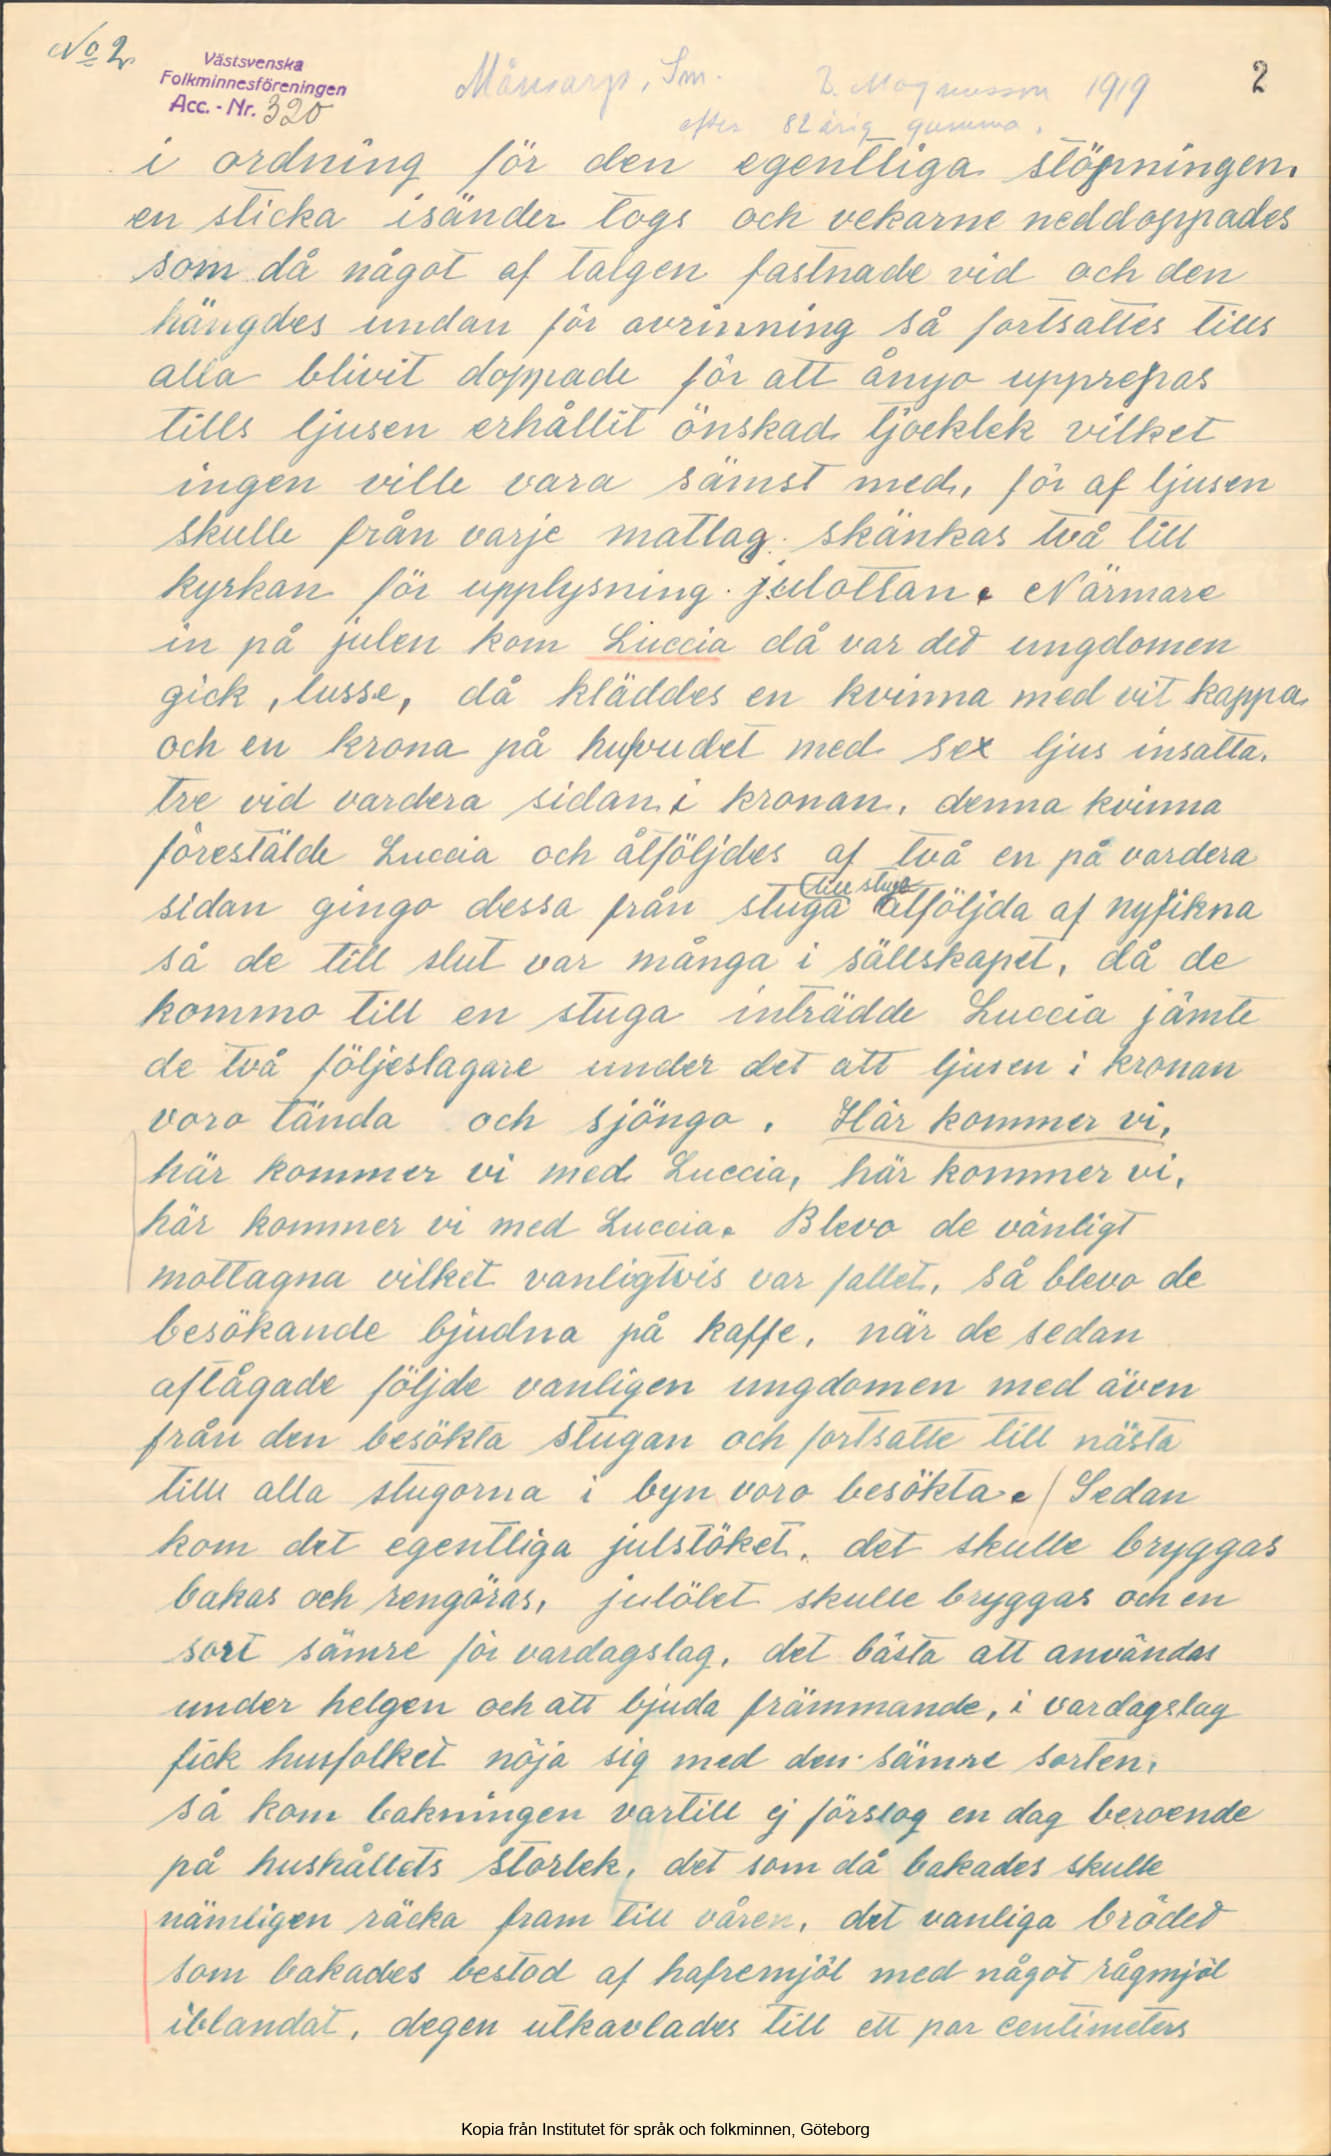 No 2.
Västsvenska
Folkminnesföreningen
Acc. - Nr. 320
Månsarp, Sm. E. Magnusson 1919
2
efter 82 årig gumma.
i ordning för den egentliga stöpningen.
en sticka isänder togs och vekarne neddoppades
som då något af talgen fastnade vid och den
hängdes undan för avrinning så fortsattes tills
alla blivit doppade för att ånyo upprepas
tills ljusen erhållit önskad tjocklek vilket
ingen ville vara sämst med, för af ljusen
skulle från varje matlag skänkas två till
kyrkan för upplysning julottan. Närmare
in på julen kom Luccia då var ded ungdomen
gick „lusse„ då kläddes en kvinna med vit kappa
och en krona på hufvudet med sex ljus insatta.
tre vid vardera sidan i kronan, denna kvinna
förestälde Luccia och åtföljdes af två en på vardera
till stuga
sidan gingo dessa från stuga åtföljda af nyfikna
så de till slut var många i sällskapet, då de
kommo till en stuga inträdde Luccia jämte
de två följeslagare under det att ljusen i kronan
voro tända och sjöngo. Här kommer vi,
här kommer vi med Luccia, här kommer vi,
här kommer vi med Luccia. Blevo de vänligt
mottagna vilket vanligtvis var fallet, så blevo de
besökande bjudna på kaffe, när de sedan
aftågade följde vanligen ungdomen med även
från den besökta stugan och fortsatte till nästa
tills alla stugorna i byn voro besökta. / Sedan
kom det egentliga julstöket, det skulle bryggas
bakas och rengöras, julölet skulle bryggas och en
sort sämre för vardagslag, det bästa att användas
under helgen och att bjuda främmande, i vardagslag
fick husfolket nöja sig med den sämre sorten,
så kom bakningen vartill ej förslog en dag beroende
på hushållets storlek, det som då bakades skulle
nämligen räcka fram till våren, det vanliga brödet
som bakades bestod af hafremjöl med något rågmjöl
iblandat, degen utkavlades till ett par centimeters
Kopia från Institutet för språk och folkminnen, Göteborg